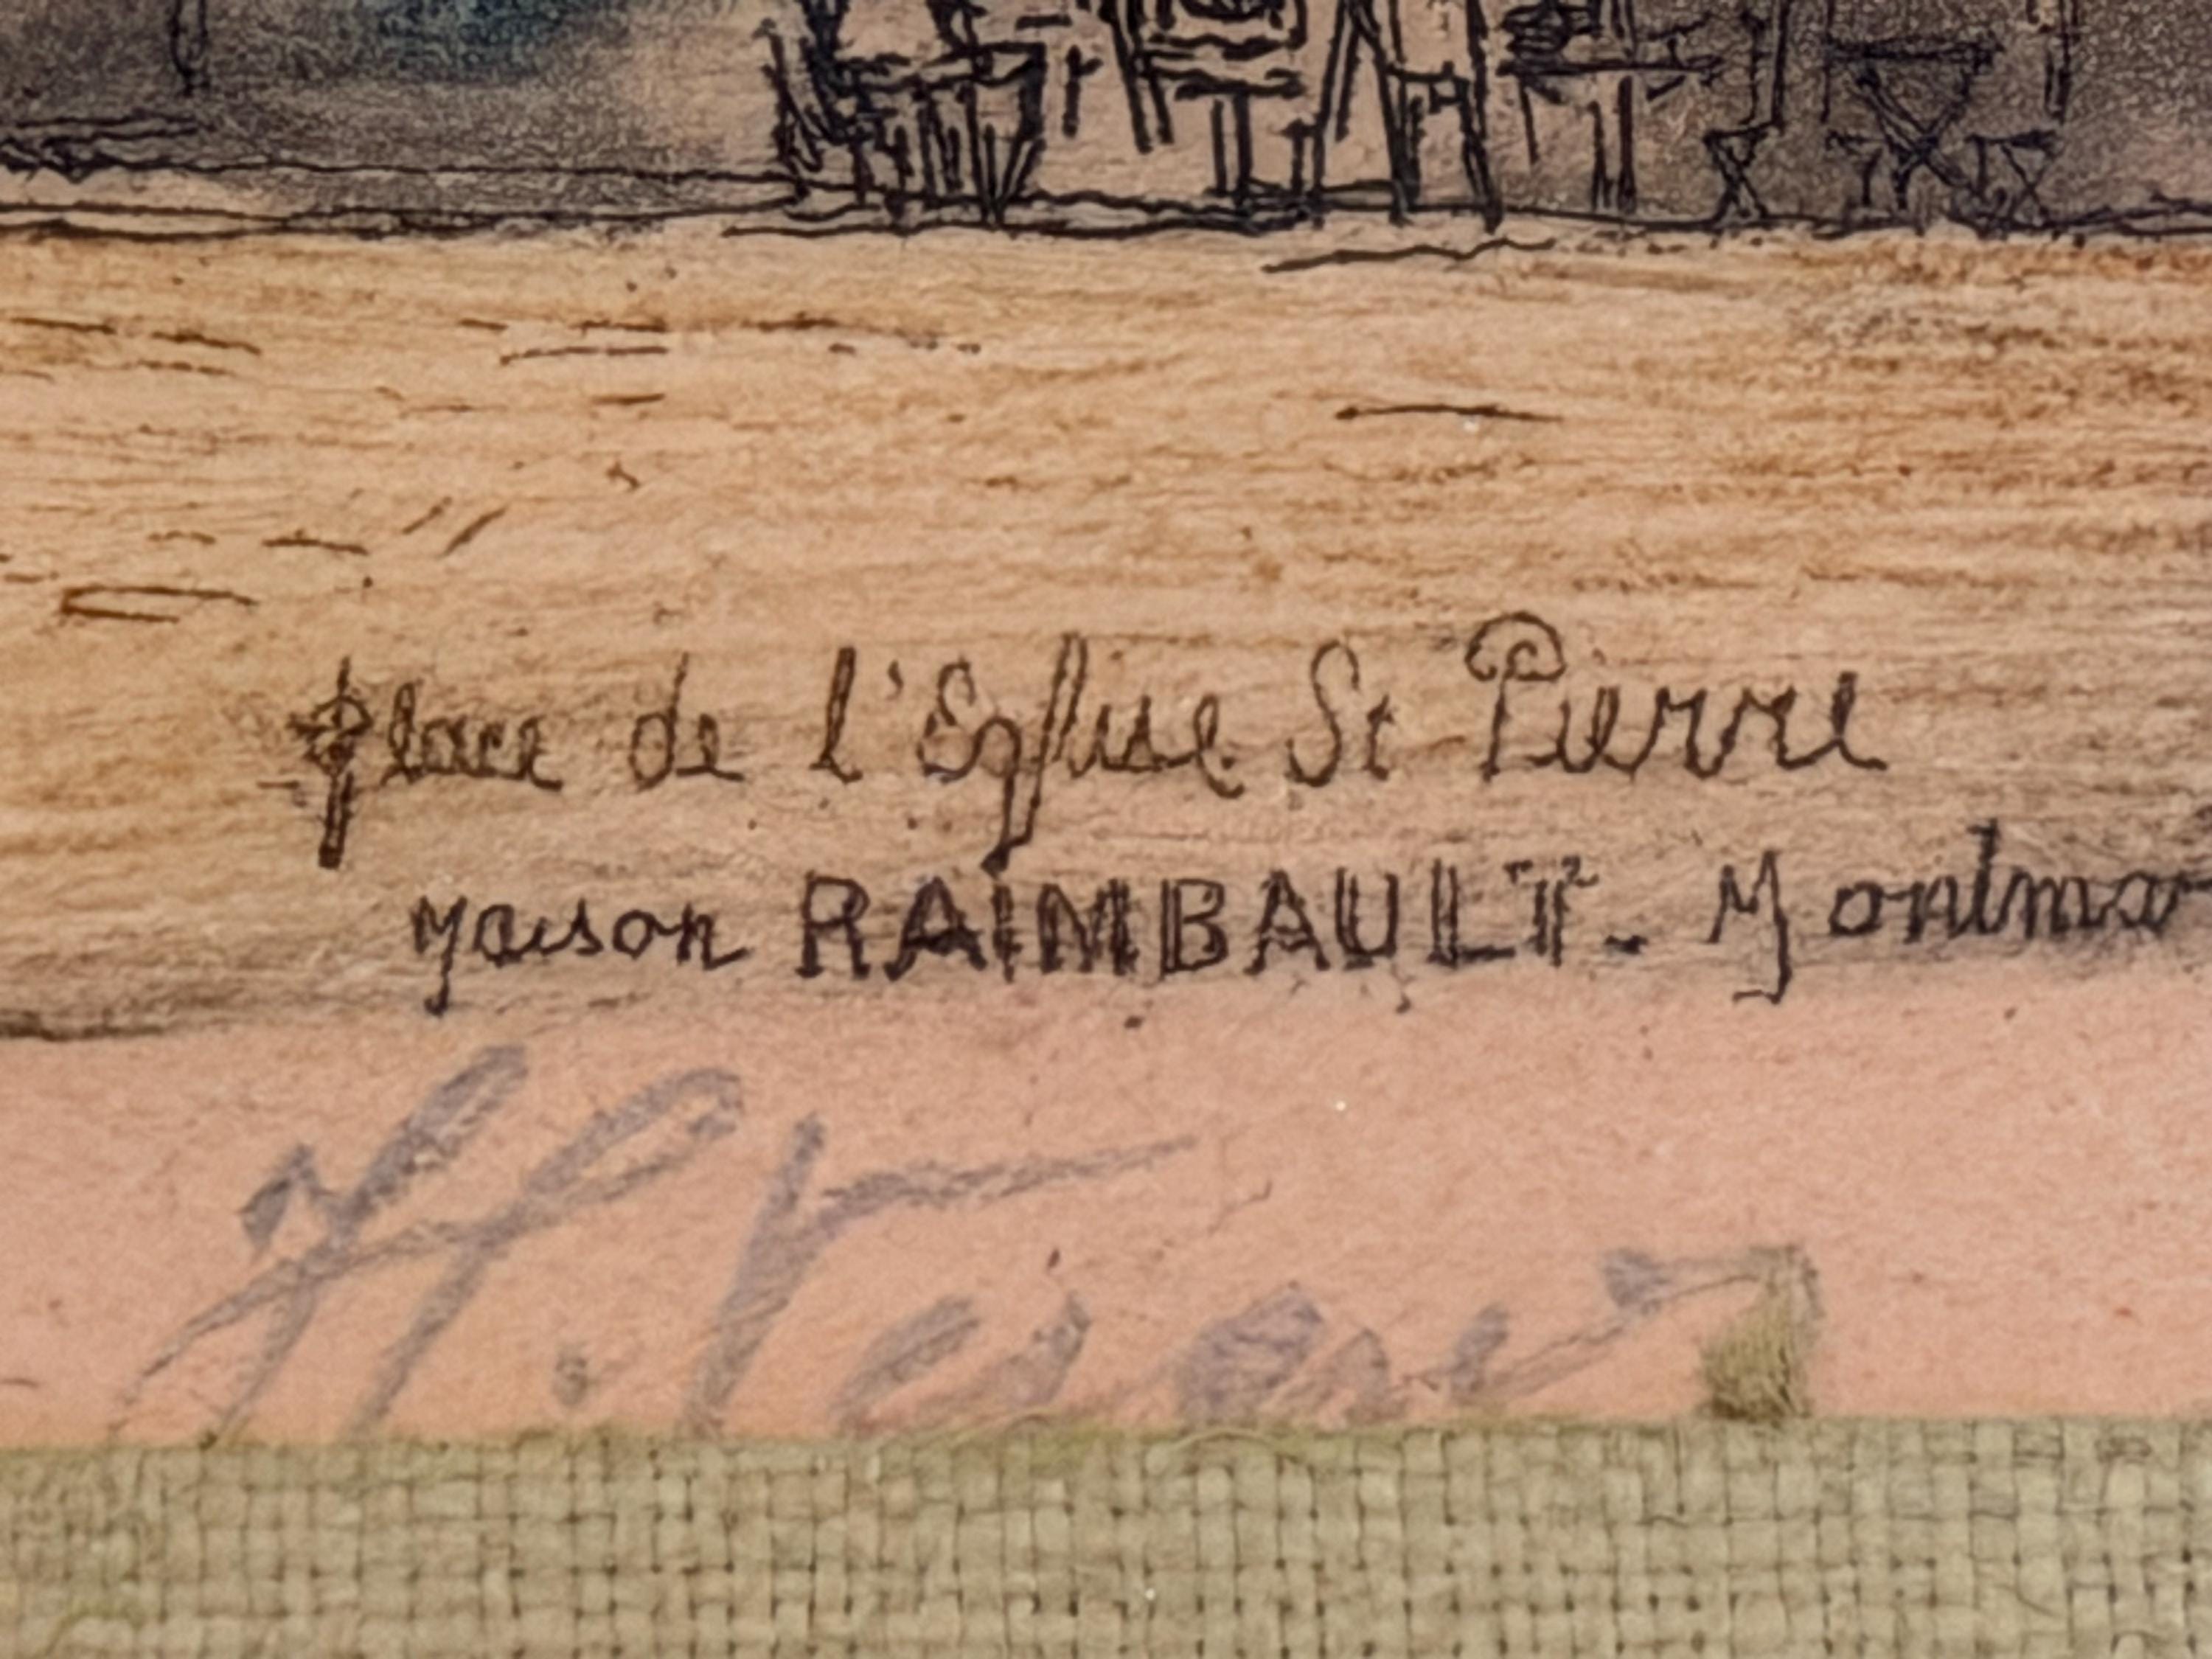 place de l'Eglise St Pierre
Maison RAIMBAULT - Montmar
H.